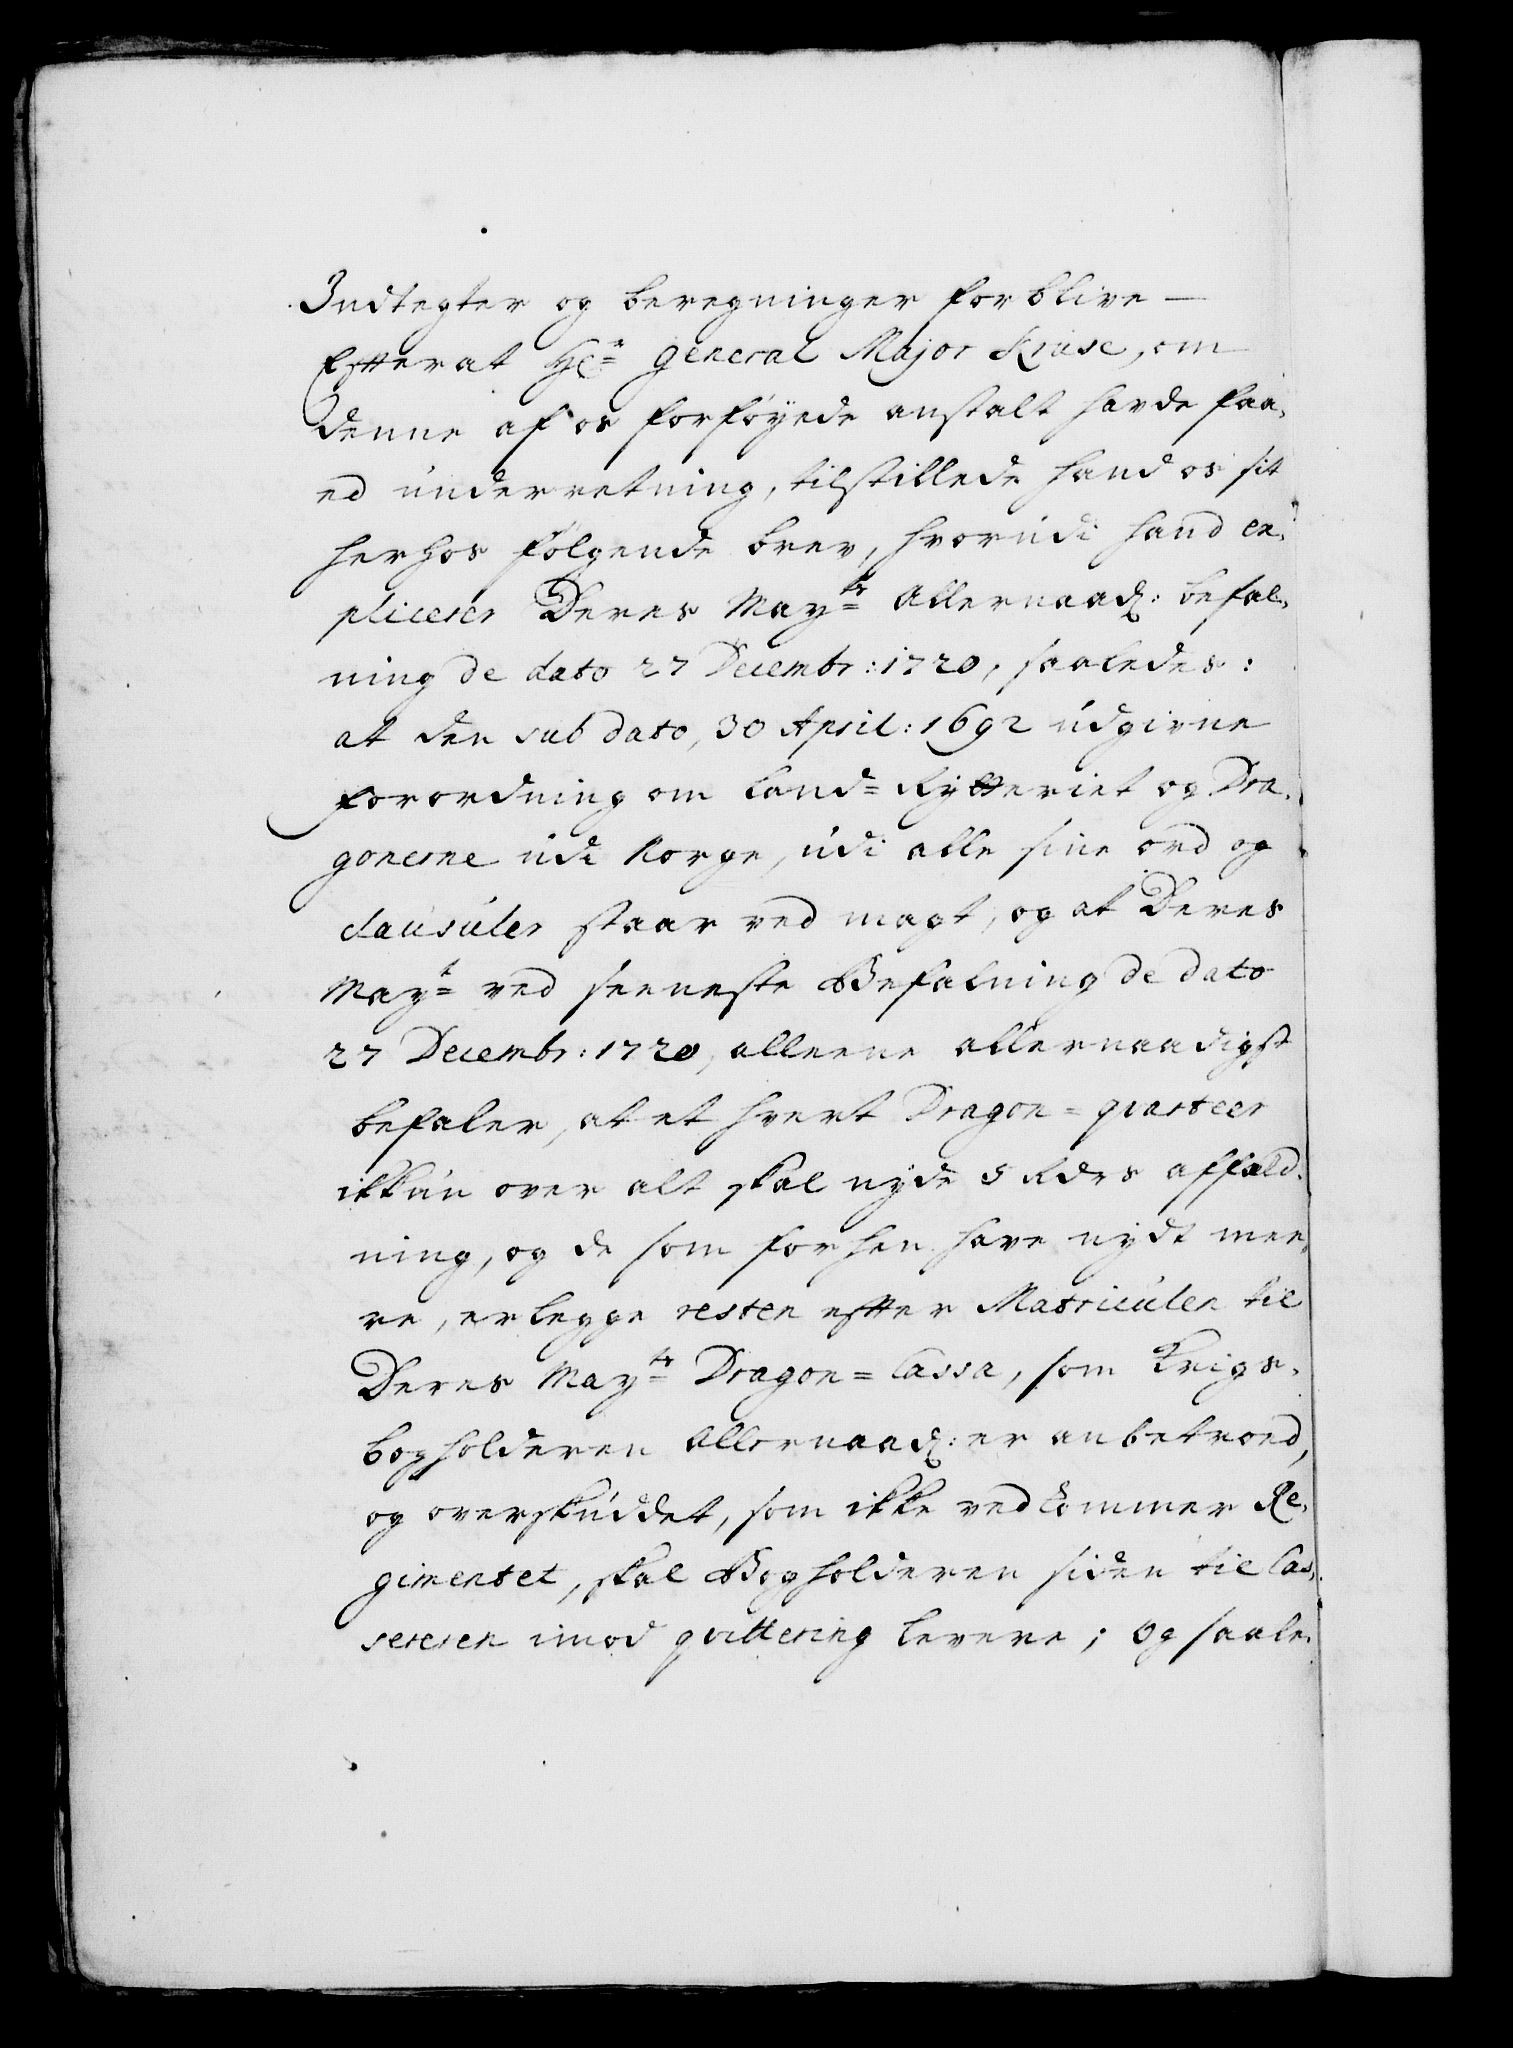 Indtegter og beregninger forblive —
Efterat Hr: General Major Kruse, om
denne af os forføyede anstalt havde faa,
ed underretning, tilstillede hand os sit
herhos følgende brev, hvorudi hand ex,
plicerer Deres Mayts Allernaad: befal,
ning de dato 27 Decembr: 1720, saaledes:
at den sub dato, 30 April: 1692 udgivne
forordning om Land= Rytteriet og Dra,
gonerne udi Norge, udi alle sine ord og
Clausuler staar ved magt, og at Deres
Mayt ved seeneste Befalning de dato
27 Decembr: 1720, alleene allernaadigst
befaler, at et hvert Dragon= qvarteer
ikkun over alt skal nyde 5 Rdrs affæld,
ning, og de som forhen have nydt mee,
re, erlegge resten efter Matriculen til
Deres Mayts Dragon= Cassa, som Krigs,
bogholderen Allernaad: er anbetroed,
og overskuddet, som ikke vedkommer Re,
gimentet, skal Bogholderen siden til Cas,
sereren imod qvittering levere; og saale,